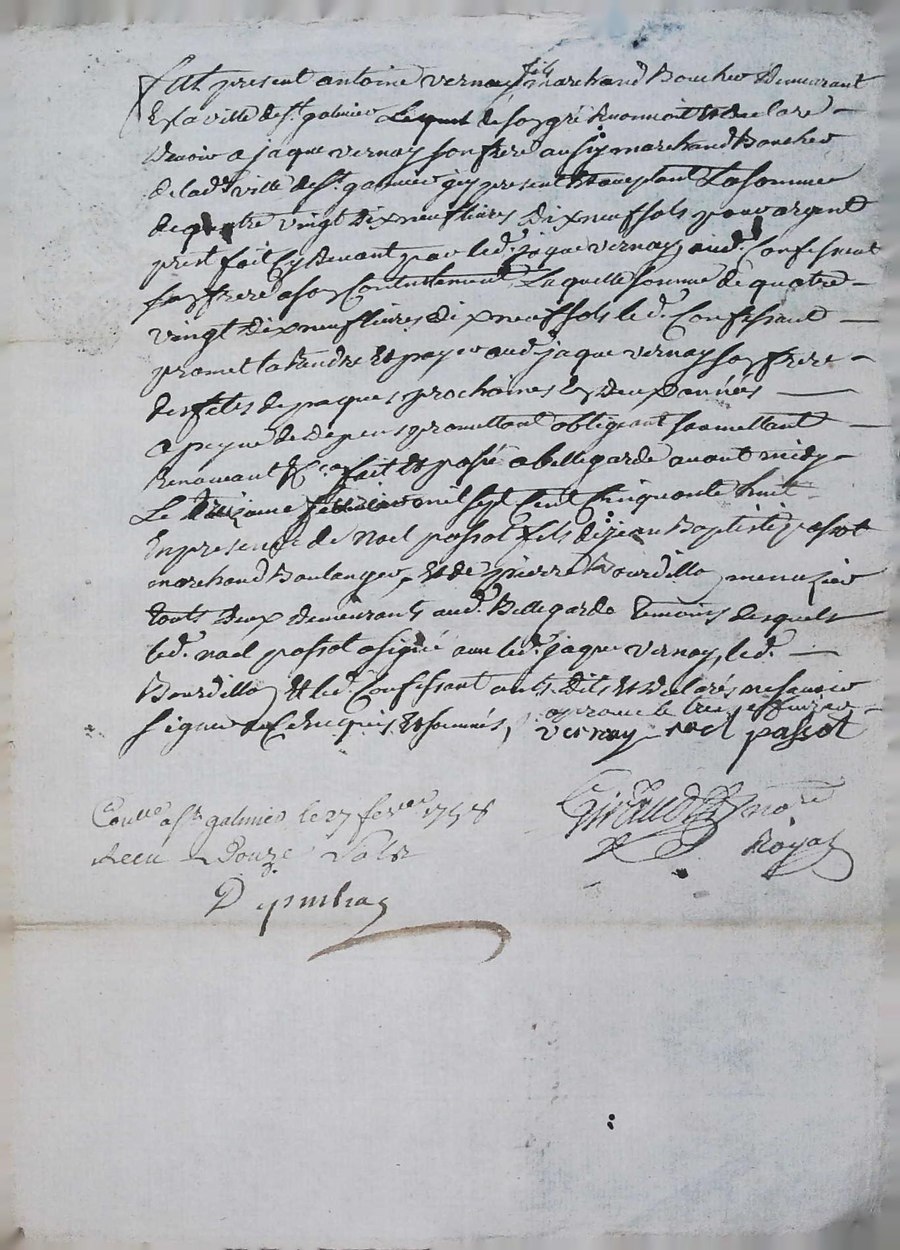 fut present antoine vernay fils marchand Boucher Demeurant
En la ville de st. galmier Lequel de son gré a reconnu et declaré
Devoir a jaque vernay son frere aussy marchand Boucher
de lade. ville de st. galmier icy present et aceptant La somme
de quatre vingt Dix neuf livres Dix neuf sols pour argent
prest fait Cy devant par led. jaque vernay aud. Confessant
son frere a son Contentement Laquelle somme de quatre
vingt Dix neuf livres Dix neuf sols led. Confessant
promet la Rendre Et payer aud. jaque vernay son frere
des fetes de paques prochaines En Deux années
a peyne de Depens promettant obligeant soumettant
Renoncant &c. fait Et passé a bellegarde avant midy
Le fevrier mil sept Cent Cinquante huit
En presence de noel passot fils de jean Baptiste passot
marchand Boulanger, Et de pierre Bourdillon menuzier
touts Deux Demeurants aud. Bellegarde temoins Desquels
led. noel passot a signé avec led. jaque vernay, led.
Bourdillon Et led. Confessant ont Dits Et Declarés ne savoir
signer de Ce Enquis Et sommés, aprouvé le
vernay noel passot
Conllé a st. galmier le 27 fevrer 1758
Recu Douze Sols
Giraud nore
Royal